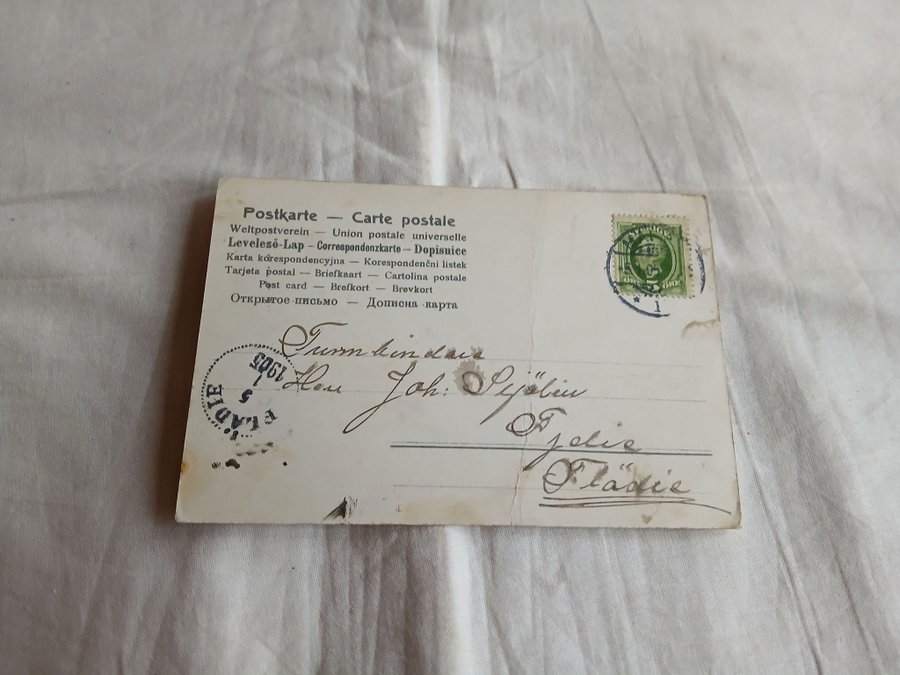 Postkarte — Carte postale
Weltpostverein — Union postale universelle
Levelező-Lap – Correspondenzkarte – Dopisnice
Karta korespondencyjna — Korespondenční lístek
Tarjeta postal — Briefkaart — Cartolina postale
Post card — Brefkort — Brevkort
Открытое письмо — Дописна карта
5 ÖRE
Herr Joh:
Fjelie
Flädie
FLÄDIE
5
1
1905